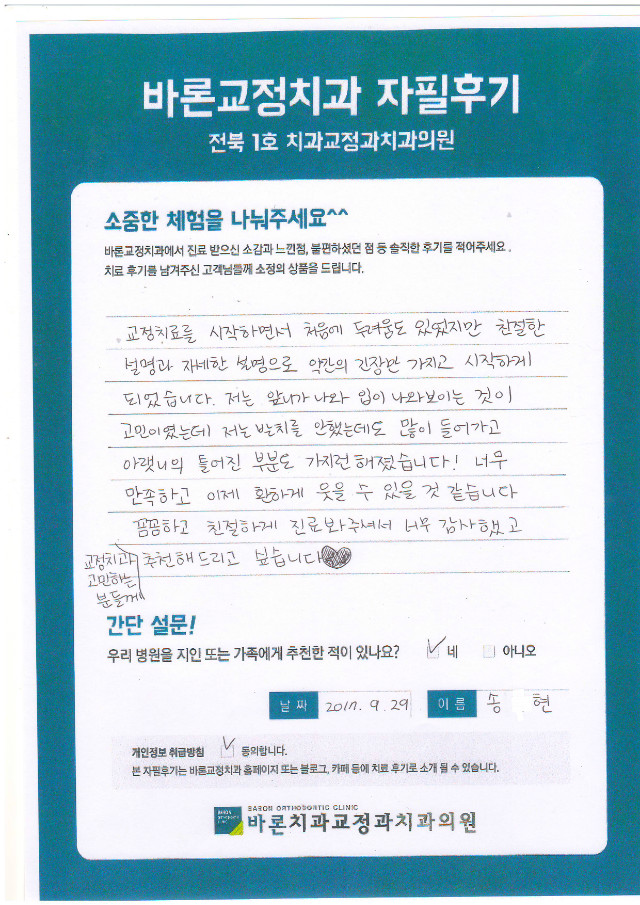 바론교정치과 자필후기
전북 1호 치과교정과치과의원
소중한 체험을 나눠주세요^^
바론교정치과에서 진료 받으신 소감과 느낀점, 불편하셨던 점 등 솔직한 후기를 적어주세요.
치료 후기를 남겨주신 고객님들께 소정의 상품을 드립니다.
교정치료를 시작하면서 처음에 두려움도 있었지만 친절한
설명과 자세한 설명으로 약간의 긴장만 가지고 시작하게
되었습니다. 저는 앞니가 나와 입이 나와보이는 것이
고민이였는데 저는 발치를 안했는데도 많이 들어가고
아랫니의 틀어진 부분도 가지런해졌습니다! 너무
만족하고 이제 환하게 웃을 수 있을 것 같습니다
꼼꼼하고 친절하게 진료봐주셔서 너무 감사했고
교정치과
고민하는
분들께
추천해드리고 싶습니다♥♥
간단 설문!
우리 병원을 지인 또는 가족에게 추천한 적이 있나요? 네 아니오
날짜 2017. 9. 29 이름 송 현
개인정보 취급방침 동의합니다.
본 자필후기는 바론교정치과 홈페이지 또는 블로그, 카페 등에 치료 후기로 소개 될 수 있습니다.
BARON ORTHODONTIC CLINIC
바론치과교정과치과의원